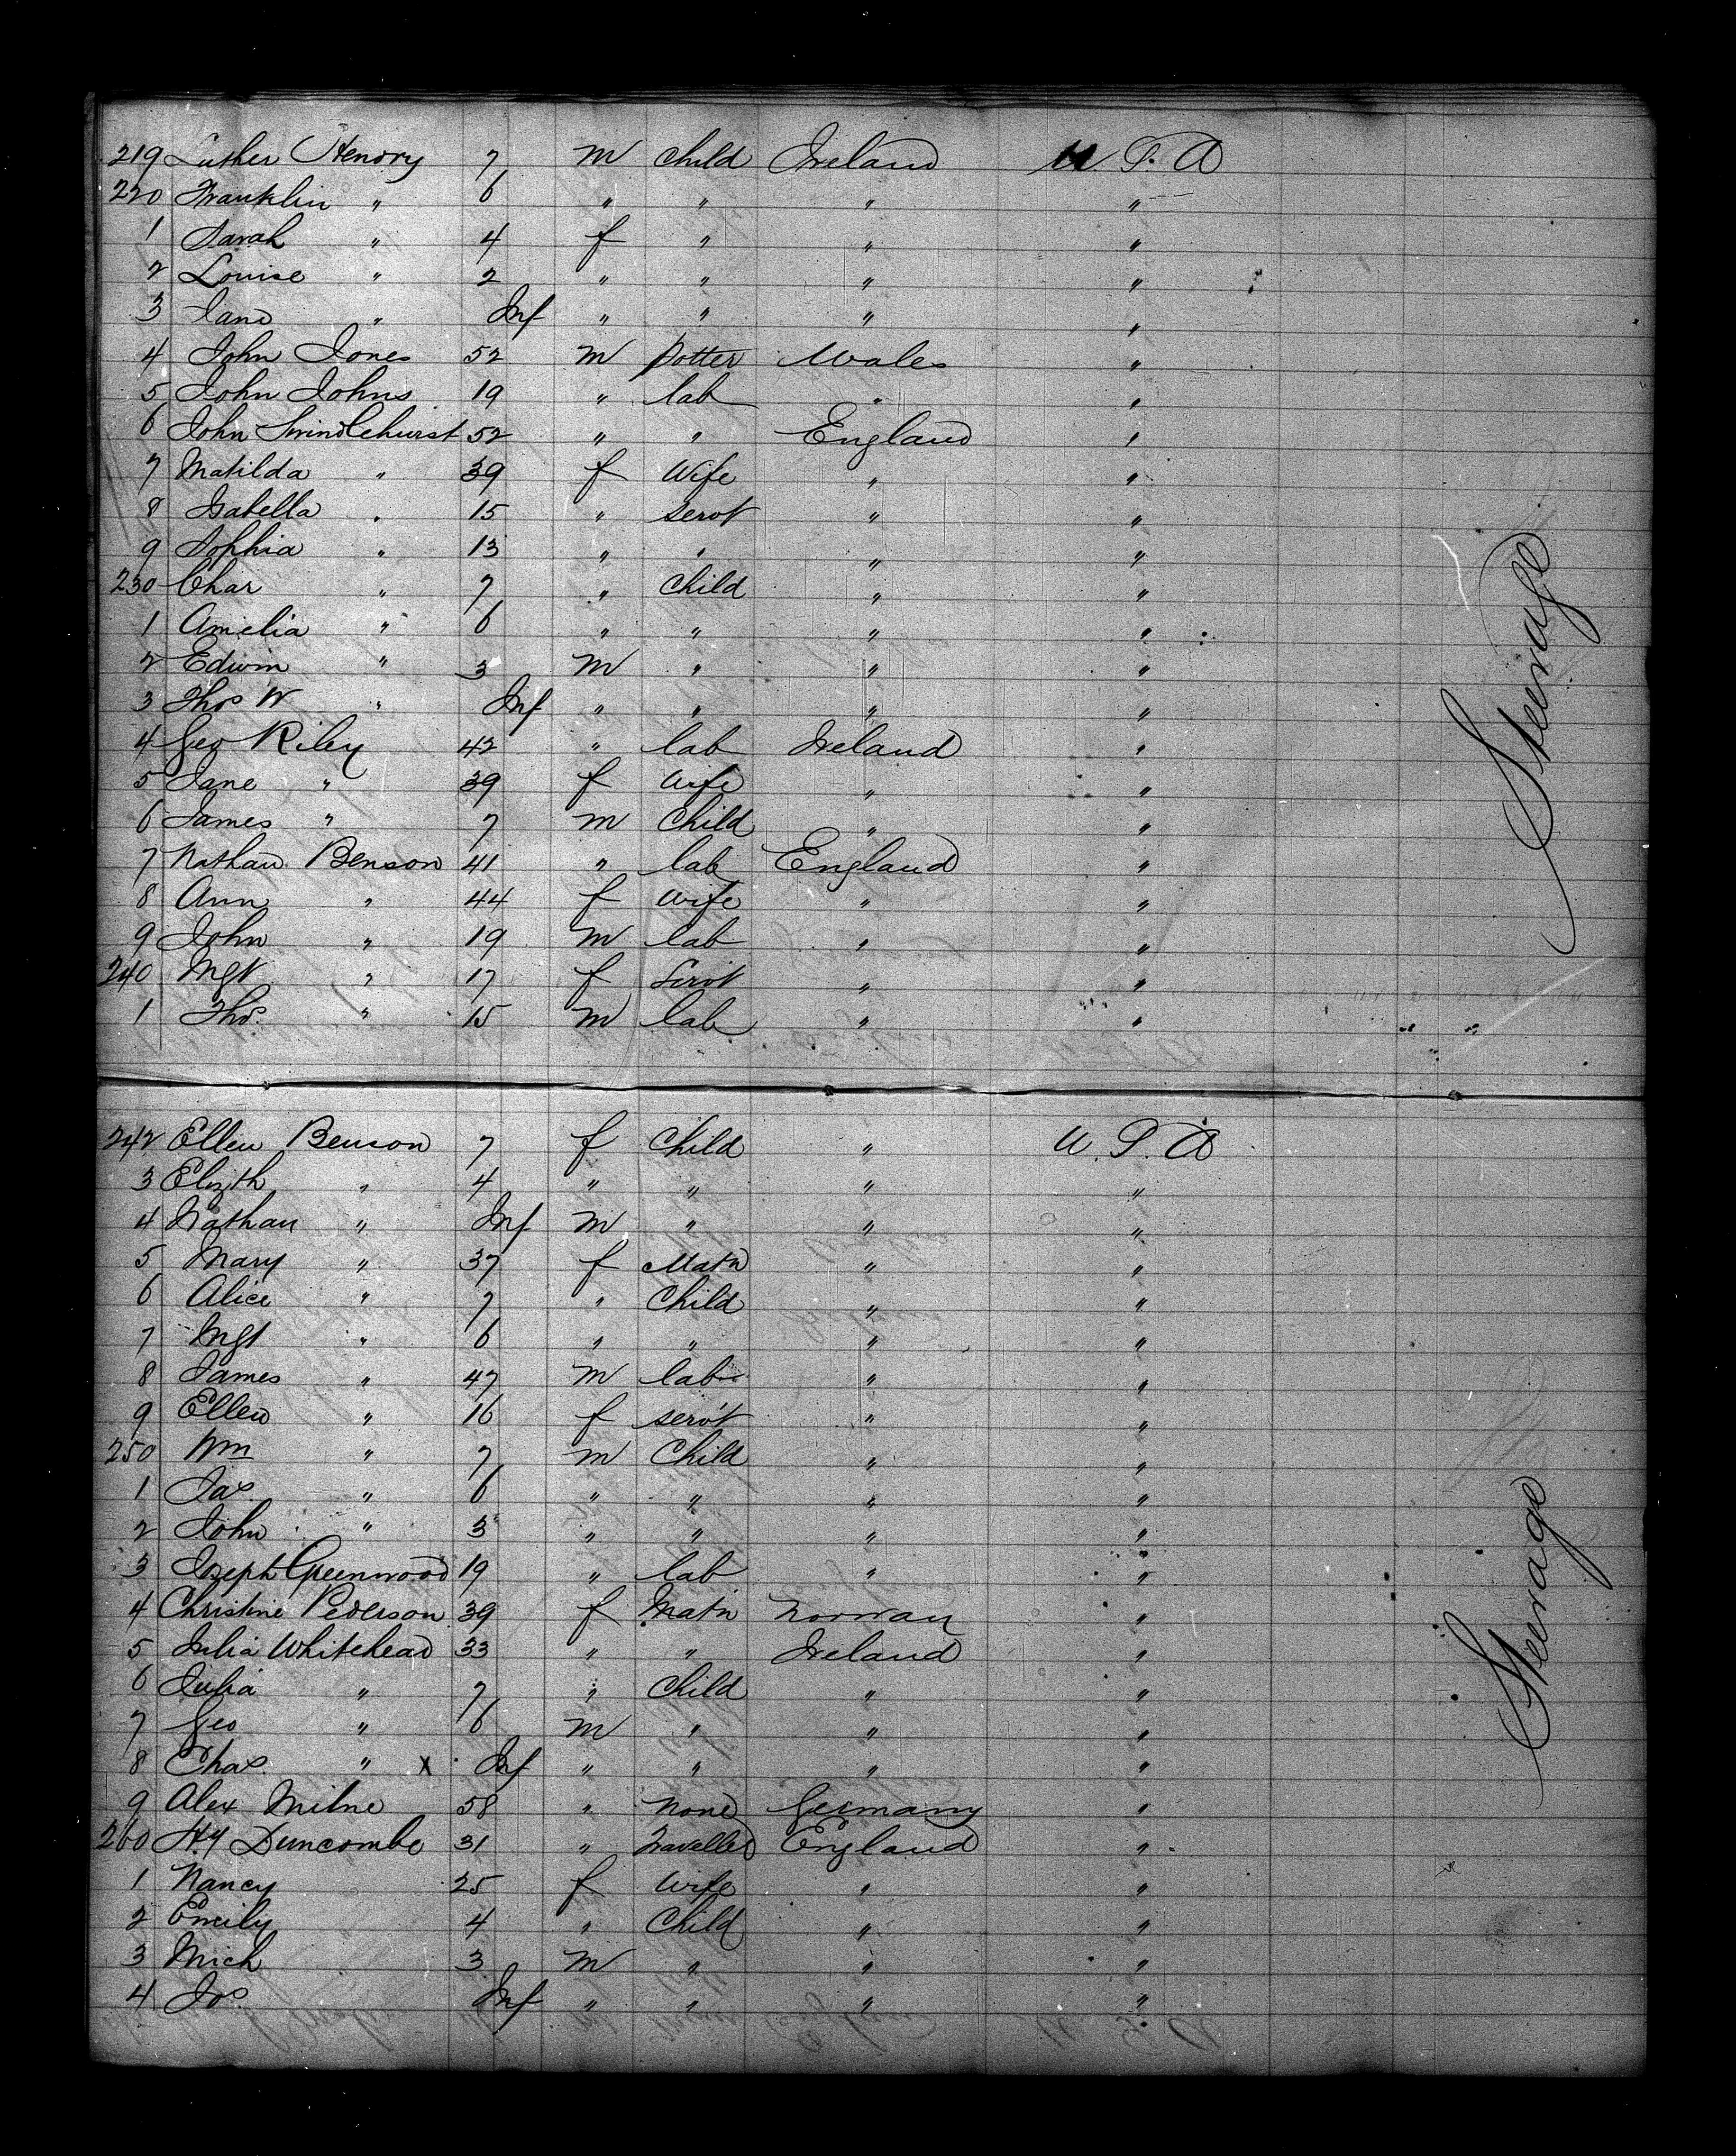 219 Luther Hendry 7 m child Ireland U.S.A
220 Franklin " 6 " " " "
1 Sarah " 4 f " " "
2 Louise " 2 " " " "
3 Jane " Inf " " " "
4 John Jones 52 m Potter Wales "
5 John Johns 19 " lab " "
6 John Swindlehurst 52 " " England "
7 Matilda " 39 f Wife " "
8 Isabella " 15 " servt " "
9 Sophia " 13 " " " "
230 Char " 7 " child " "
1 Amelia " 6 " " " "
2 Edwin " 3 m " " "
3 Thos W " Inf " " " "
4 Geo Riley 42 " lab Ireland "
5 Jane " 39 f wife " "
6 James " 7 m Child " "
7 Nathan Benson 41 " lab England "
8 Ann " 44 f wife " "
9 John " 19 m lab " "
240 Mgt " 17 f Servt " "
1 Thos. " 15 m lab " "
Steerage
242 Ellen Benson 7 f Child " U.S.A
3 Elizth " 4 " " " "
4 Nathan " Inf m " " "
5 Mary " 37 f Matn " "
6 Alice " 7 " Child " "
7 Mgt " 6 " " " "
8 James " 47 m lab " "
9 Ellen " 16 f servt " "
250 Wm " 7 m Child " "
1 Jas. " 6 " " " "
2 John " 3 " " " "
3 Joseph Greenwood 19 " lab " "
4 Christine Pederson 39 f Matn Norway "
5 Julia Whitehead 33 " " Ireland "
6 Julia " 7 " Child " "
7 Geo " 6 m " " "
8 Chas. " x Inf " " " "
9 Alex Milne 58 " None Germany "
260 Hy Duncombe 31 " Traveller England "
1 Nancy 25 f wife " "
2 Emily 4 " Child " "
3 Mich 3 m " " "
4 Jos. Inf " " " "
Steerage